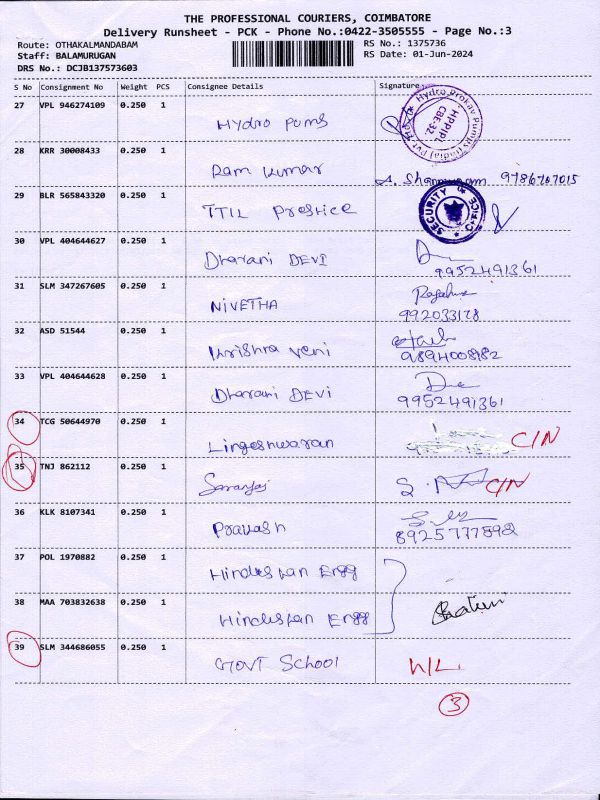 THE PROFESSIONAL COURIERS, COIMBATORE
Delivery Runsheet - PCK - Phone No.:0422-3505555 - Page No.:3
Route: OTHAKALMANDABAM RS No.: 1375736
Staff: BALAMURUGAN RS Date: 01-Jun-2024
DRS No.: DCJB137573603
S No Consignment No Weight PCS Consignee Details Signature
27 VPL 946274109 0.250 1
Hydro pums
HPPIPL
CBE-32
28 KRR 30008433 0.250 1
Ram kumar
9786707015
29 BLR 565843320 0.250 1
TTIL Prestice
SECURITY OFFICE
30 VPL 404644627 0.250 1
Dharani DEVI
9952491361
31 SLM 347267605 0.250 1
NIVETHA
992033178
32 ASD 51544 0.250 1
Krishna veni
9894008982
33 VPL 404644628 0.250 1
Dharani DEVI
9952491361
34 TCG 50644970 0.250 1
Lingeshwaran C/N
35 TNJ 862112 0.250 1
C/N
36 KLK 8107341 0.250 1
Prakash
8925777892
37 POL 1970882 0.250 1
Hindustan Engg
38 MAA 703832638 0.250 1
Hindustan Engg
39 SLM 344686055 0.250 1
GOVT School H/L
3